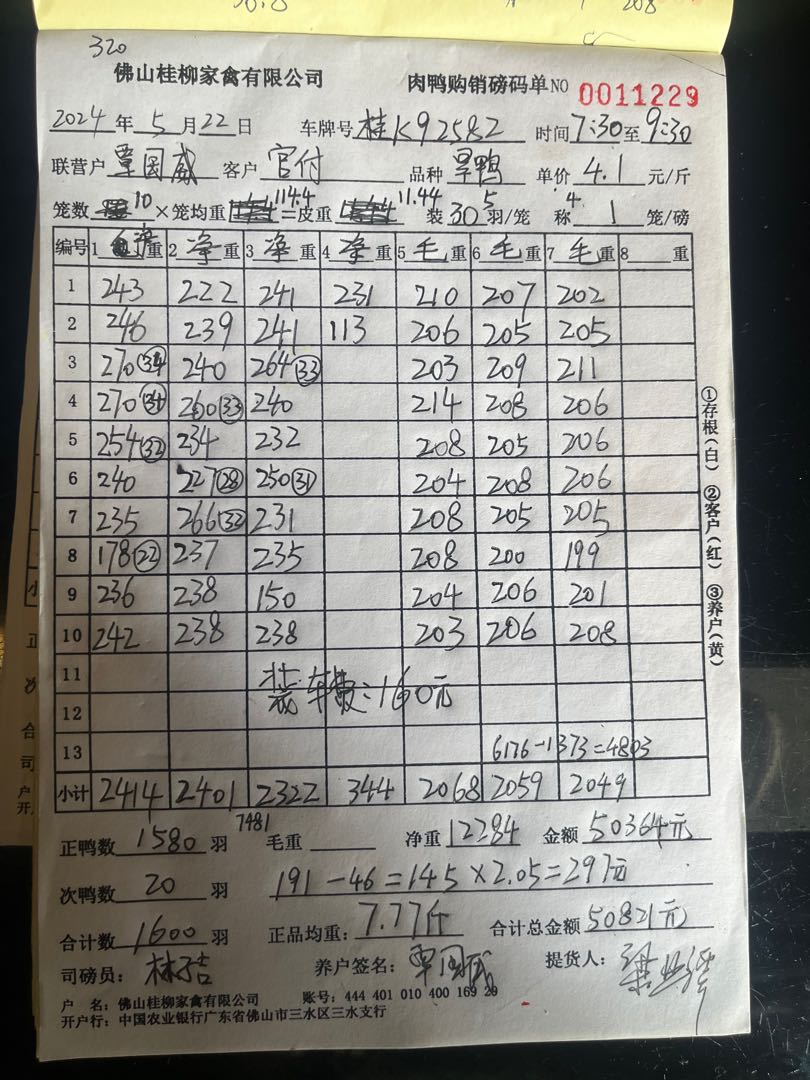 320
佛山桂柳家禽有限公司 肉鸭购销磅码单 NO 0011229
2024年5月22日 车牌号 桂K92582 时间7:30至9:30
联营户 覃国威 客户 官付 品种 旱鸭 单价 4.1 元/斤
笼数 10 ×笼均重 114.4 =皮重 11.44 装 30 5 羽/笼 称 4 1 笼/磅
编号 1 净 重 2 净 重 3 净 重 4 净 重 5 毛 重 6 毛 重 7 毛 重 8 重
1 243 222 241 231 210 207 202
2 246 239 241 113 206 205 205
3 270(34) 240 264(33) 203 209 211
4 270(34) 260(33) 240 214 208 206
5 254(32) 234 232 208 205 206
6 240 227(28) 250(31) 204 208 206
7 235 266(32) 231 208 205 205
8 178(22) 237 235 208 200 199
9 236 238 150 204 206 201
10 242 238 238 203 206 208
11
装车费:160元
12
13 6176-1373=4803
小计 2414 2401 2322 344 2068 2059 2049
正鸭数 1580 羽 7481 毛重 净重 12284 金额 50364元
次鸭数 20 羽 191-46=145×2.05=297元
合计数 1600 羽 正品均重: 7.77斤 合计总金额 50821元
司磅员: 养户签名: 覃国威 提货人:
户 名: 佛山桂柳家禽有限公司 账号: 444 401 010 400 169 29
开户行: 中国农业银行广东省佛山市三水区三水支行
①存根(白) ②客户(红) ③养户(黄)